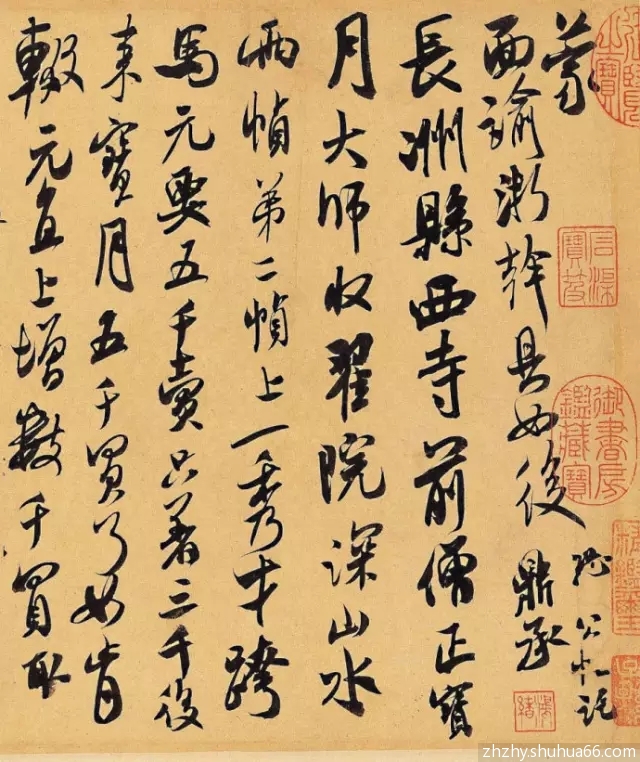 蒙
面諭浙幹具如後 鼎承
長洲縣西寺前僧正寶
月大師收翟院深山水
兩幀第二幀上一秀才跨
馬元要五千賣只著三千後
来寶月五千買了如肯
輟元直上增數千買取
御書房鑑藏寶
zhzhy.shuhua66.com